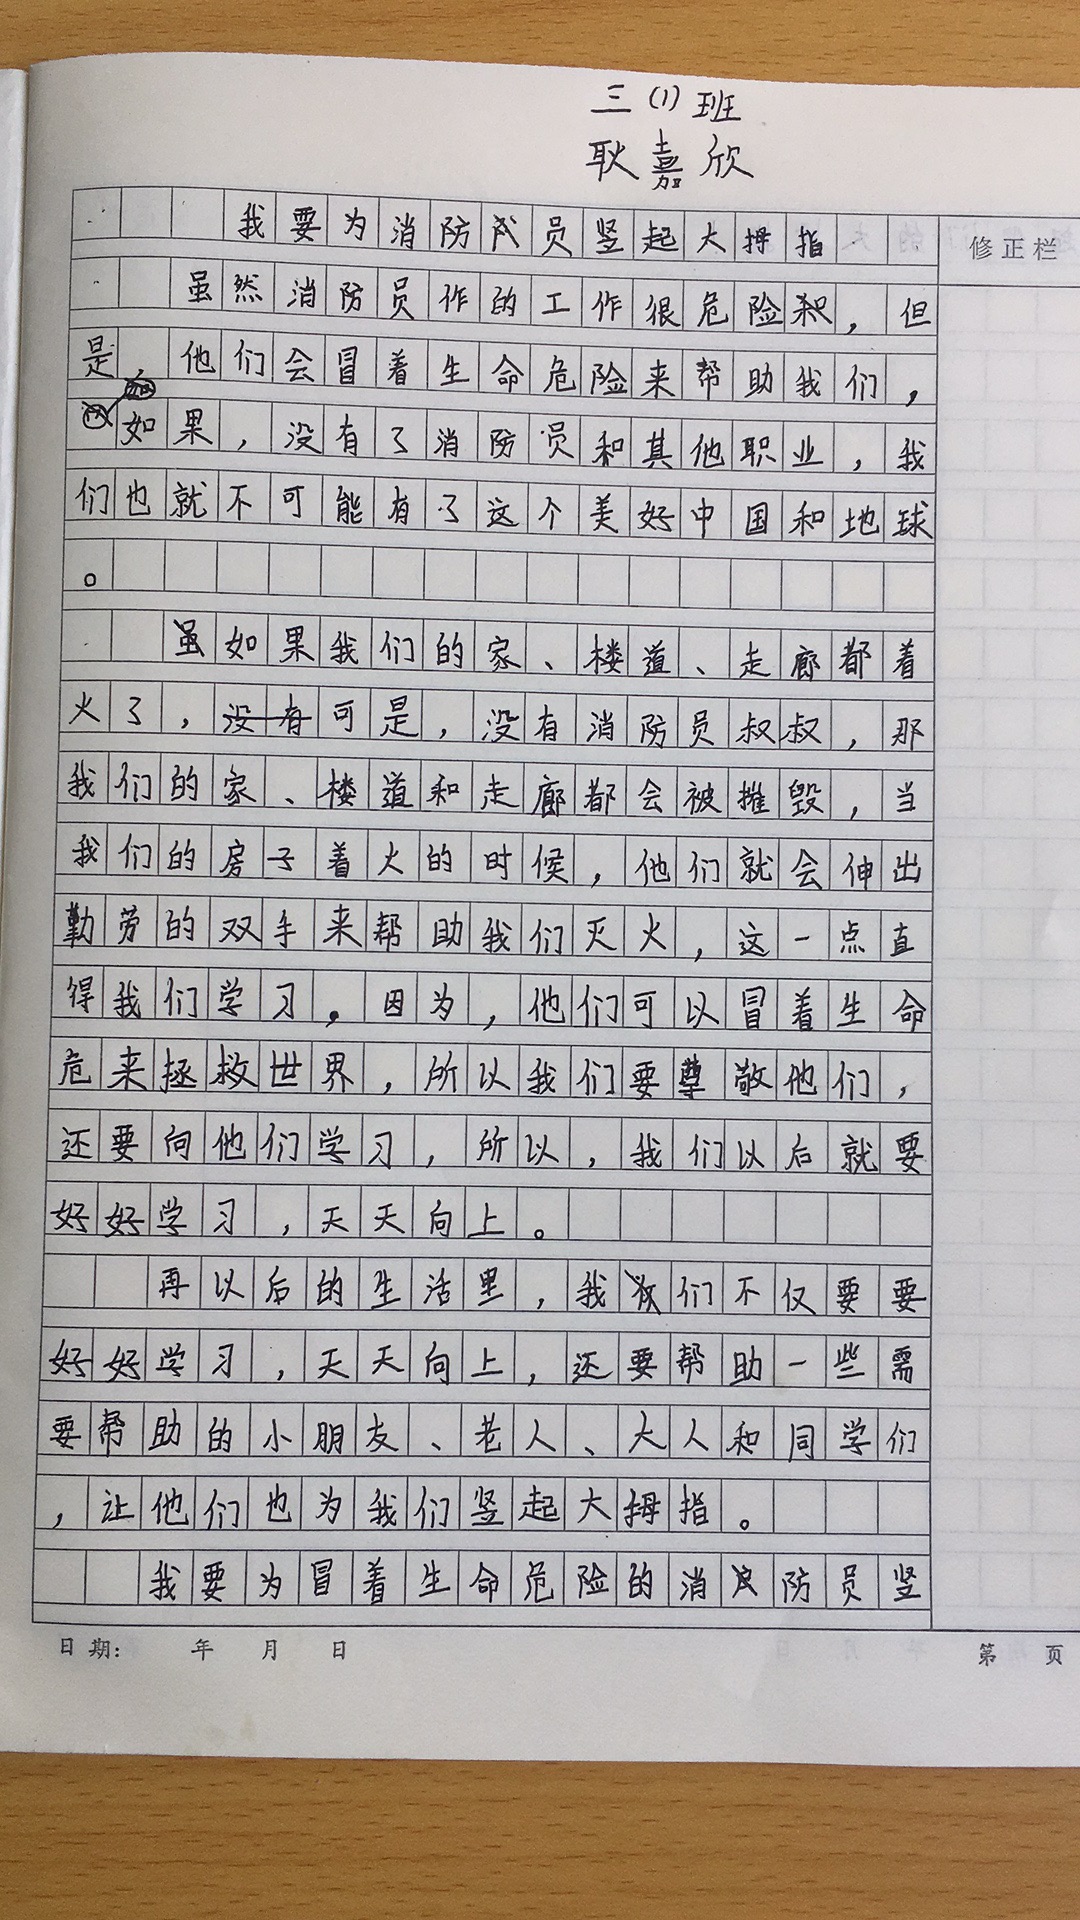 三(1)班
耿嘉欣
我要为消防员竖起大拇指
修正栏
虽然消防员作的工作很危险,但
是他们会冒着生命危险来帮助我们,
如果,没有了消防员和其他职业,我
们也就不可能有了这个美好中国和地球
。
如果我们的家、楼道、走廊都着
火了,可是,没有消防员叔叔,那
我们的家、楼道和走廊都会被摧毁,当
我们的房子着火的时候,他们就会伸出
勤劳的双手来帮助我们灭火,这一点直
得我们学习。因为,他们可以冒着生命
危来拯救世界,所以我们要尊敬他们,
还要向他们学习,所以,我们以后就要
好好学习,天天向上。
再以后的生活里,我们不仅要要
好好学习,天天向上,还要帮助一些需
要帮助的小朋友、老人、大人和同学们
,让他们也为我们竖起大拇指。
我要为冒着生命危险的消防员竖
日期: 年 月 日
第 页